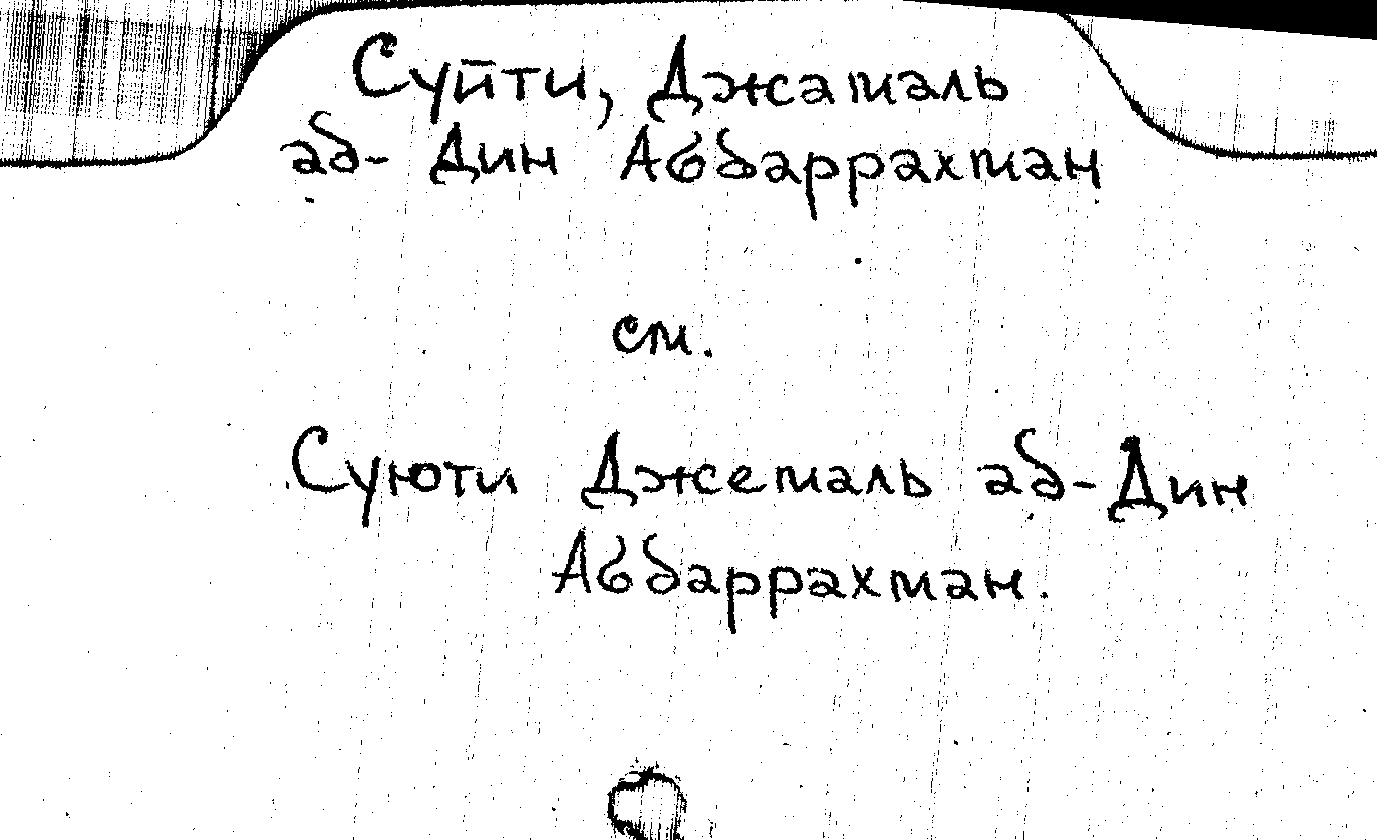 Суйти, Джамаль
ад- Дин Абдаррахман
см.
Суюти Джемаль ад-Дин
Абдаррахман.